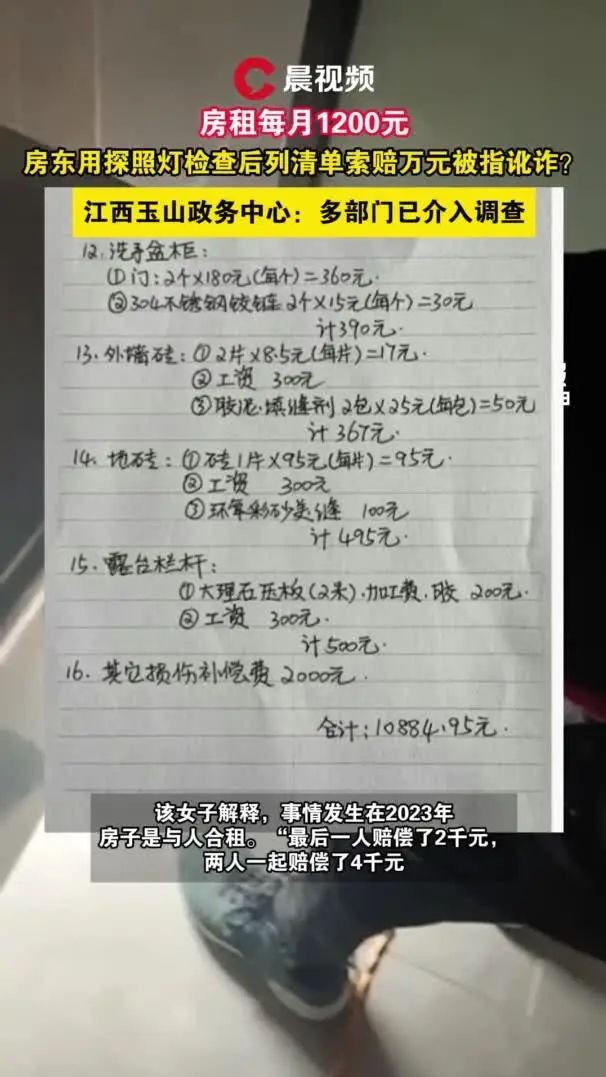 晨视频
房租每月1200元
房东用探照灯检查后列清单索赔万元被指讹诈?
江西玉山政务中心：多部门已介入调查
12.洗手盆柜：
①门：2个×180元(每个)=360元.
②304不锈钢铰链2个×15元(每个)=30元
计390元.
13.外墙砖：①2片×8.5元(每片)=17元.
②工资 300元
③胶泥.填缝剂2包×25元(每包)=50元
计367元.
14.地砖：①砖1片×95元(每片)=95元.
②工资 300元
③环氧彩砂美缝 100元
计495元.
15.露台栏杆：
①大理石压板(2米).加工费.胶 200元.
②工资 300元.
计500元.
16.其它损伤补偿费2000元.
合计：10884.95元.
该女子解释，事情发生在2023年
房子是与人合租。“最后一人赔偿了2千元，
两人一起赔偿了4千元